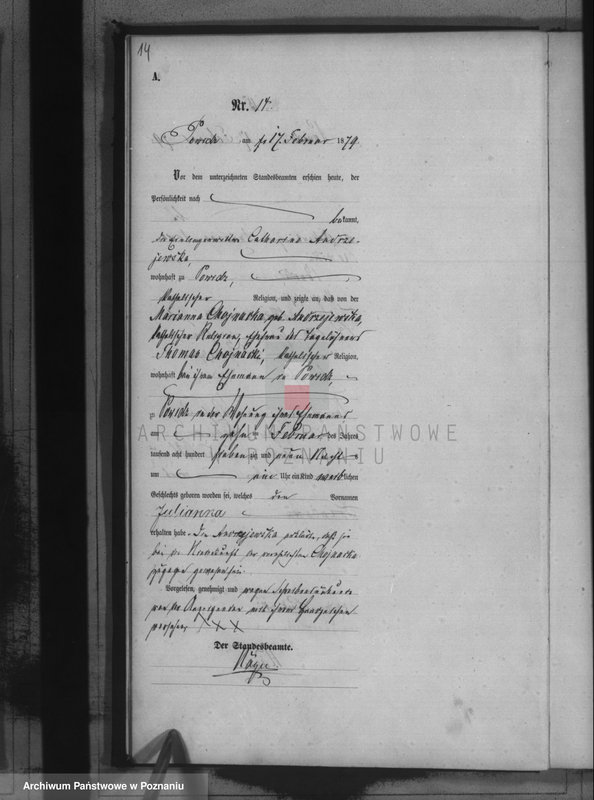 14
A.
Nr. 14
Powidz am 17. Februar 1879.
Vor dem unterzeichneten Standesbeamten erschien heute, der
Persönlichkeit nach
bekannt,
die Catharina Andrze-
jewska,
wohnhaft zu Powidz,
katholischer Religion, und zeigte an, daß von der
Marianna Chojnacka, geb. Andrzejewska,
katholischer Religion, Ehefrau des Tagelöhners
Thomas Chojnacki, katholischer Religion,
wohnhaft bei ihrem Ehemann in Powidz,
zu Powidz in der Wohnung ihres Ehemannes
am zehn Februar des Jahres
tausend acht hundert sieben zig und neun Nachts
um ein Uhr ein Kind weiblichen
Geschlechts geboren worden sei, welches den Vornamen
Julianna
erhalten habe. Die Andrzejewska erklärte, daß sie
bei der Niederkunft der Chojnacka
zugegen gewesen sei.
Vorgelesen, genehmigt und wegen Schreibensunkunde
von der Anzeigenden mit ihrem Handzeichen
versehen, XXX
Der Standesbeamte.
ARCHIWUM PAŃSTWOWE
W POZNANIU
Archiwum Państwowe w Poznaniu